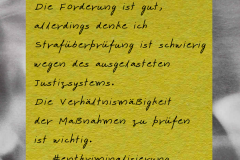 Die Forderung ist gut,
allerdings denke ich
Strafüberprüfung ist schwierig
wegen des ausgelasteten
Justizsystems.
Die Verhältnismäßigkeit
der Maßnahmen zu prüfen
ist wichtig.
#entkriminalisierung